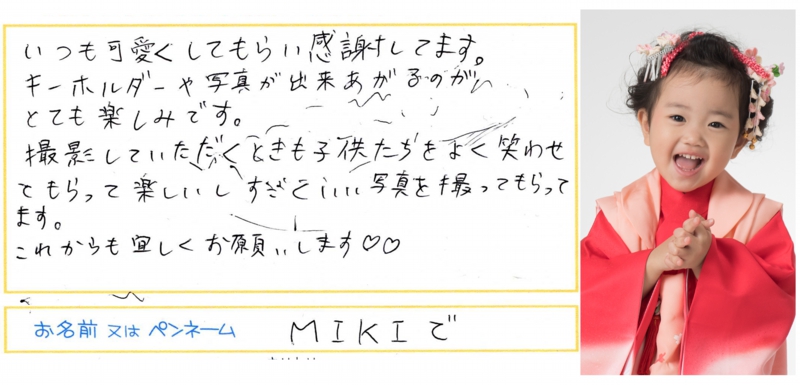 いつも可愛くしてもらい感謝してます。
キーホルダーや写真が出来あがるのが
とても楽しみです。
撮影していただくときも子供たちをよく笑わせ
てもらって楽しいしすごくいい写真を撮ってもらって
ます。
これからも宜しくお願いします♡♡
お名前 又は ペンネーム
MIKIで